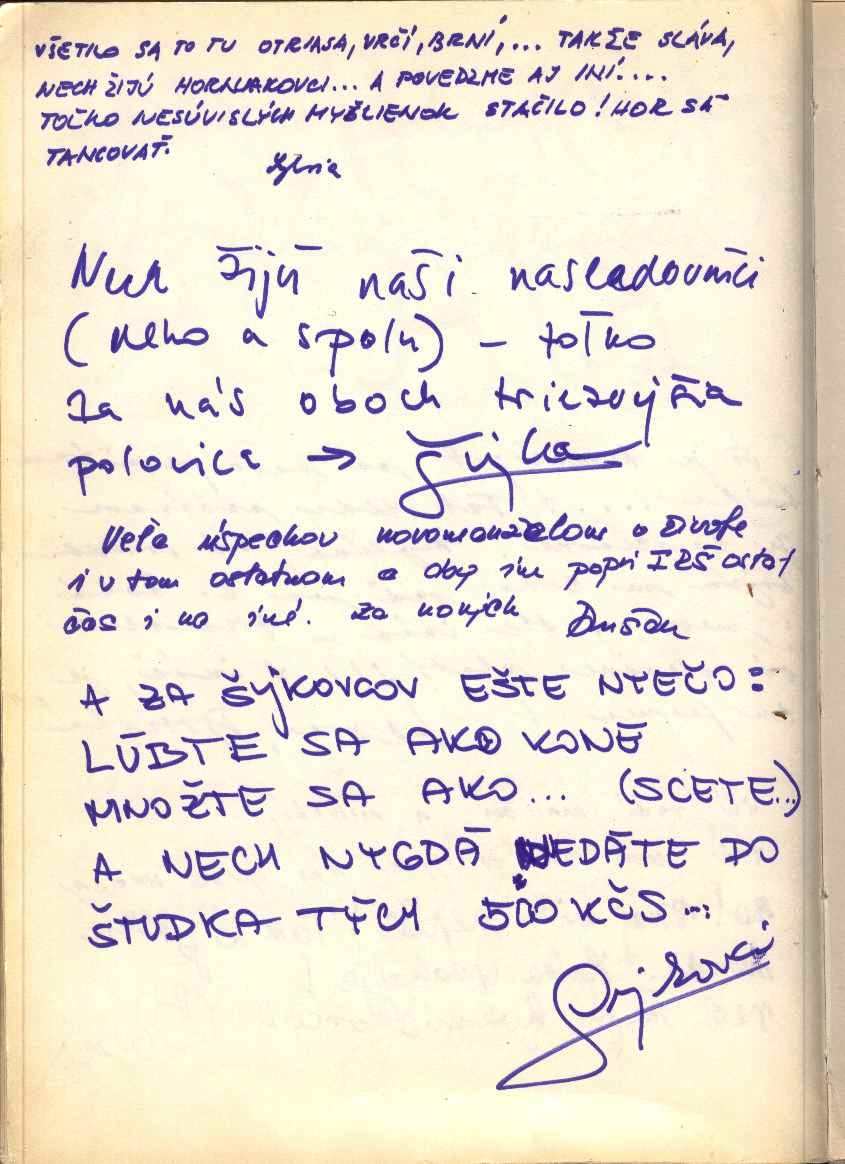 VŠETKO SA TO TU OTRIASA, VRČÍ, BRNÍ,... TAKŽE SLÁVA,
NECH ŽIJÚ HORNIAKOVCI... A POVEDZME AJ INÍ....
TOĽKO NESÚVISLÝCH MYŠLIENOK STAČILO! HOR SA
TANCOVAŤ.
Sylvia
Nech žijú naši nasledovníci
(neho a spolu) – toľko
za nás oboch triezvejšia
polovica →
Veľa úspechov novomanželom v živote
i v tom ostatnom a aby im popri IPŠ ostal
čas i na iné. Za nových Dušan
A ZA ŠYJKOVCOV EŠTE NYEČO:
ĽÚBTE SA AKO KONĚ
MNOŽTE SA AKO... (SCETE..)
A NECH NYGDÁ NEDÁTE DO
ŠTUDKA TÝCH 500 KČS...
Šyjkovci